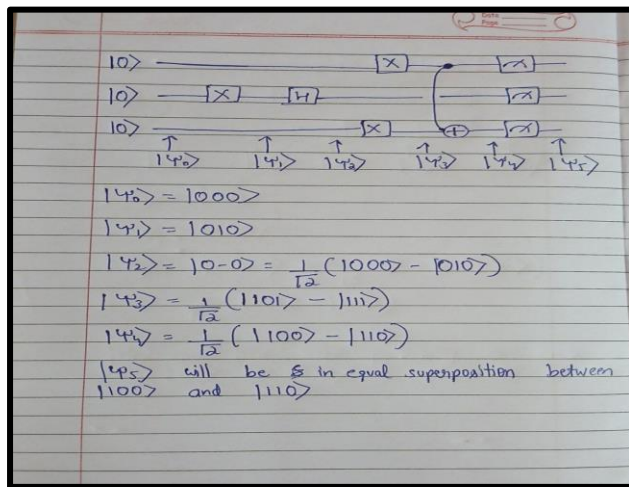 Date
Page
|0> X
|0> X H
|0> X +
|ψ₀> |ψ₁> |ψ₂> |ψ₃> |ψ₄> |ψ₅>
|ψ₀> = |000>
|ψ₁> = |010>
|ψ₂> = |0-0> = 1/√2 (|000> - |010>)
|ψ₃> = 1/√2 (|101> - |111>)
|ψ₄> = 1/√2 (|100> - |110>)
|ψ₅> will be in equal superposition between
|100> and |110>